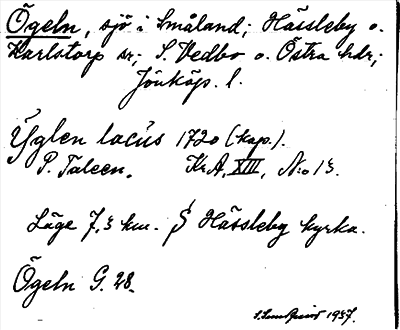 Ögeln, sjö i Småland; Hässleby o.
Karlstorp snr; S. Vedbo o. Östra hdr;
Jönköp. l.
Yglen lacus 1720 (kop.).
P. Taleen. Kr. A. XIII, N:o 13.
Läge 7,3 km. S Hässleby kyrka.
Ögeln G. 28.
1937.